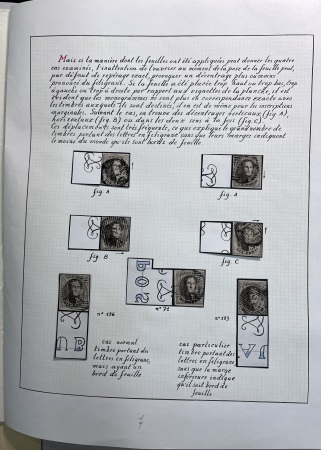 Mais si la manière dont les feuilles ont été appliquées peut donner les quatre
cas examinés, l'inattention de l'ouvrier au moment de la pose de la feuille peut,
par défaut de repérage exact, provoquer un décentrage plus ou moins
prononcé du filigrane. Si la feuille a été placée trop haut ou trop bas, trop
à gauche ou trop à droite par rapport aux vignettes de la planche, il est
évident que les monogrammes ne sont plus en correspondance exacte avec
les timbres auxquels ils sont destinés; il en est de même pour les inscriptions
marginales. Suivant le cas, on trouve des décentrages verticaux (fig. A),
horizontaux (fig. B) ou dans les deux sens à la fois (fig. C).
Ces déplacements sont très fréquents, ce qui explique le grand nombre de
timbres portant des lettres en filigrane sans que leurs marges indiquent
le moins du monde qu'ils sont bords de feuille
fig. A
fig. A
fig. B
fig. C
POS
n° 71
UB
VA
cas normal
timbre portant des
lettres en filigrane
mais ayant un
bord de feuille
cas particulier
timbre portant des
lettres en filigrane
sans que la marge
inférieure indique
qu'il soit bord de
feuille
7